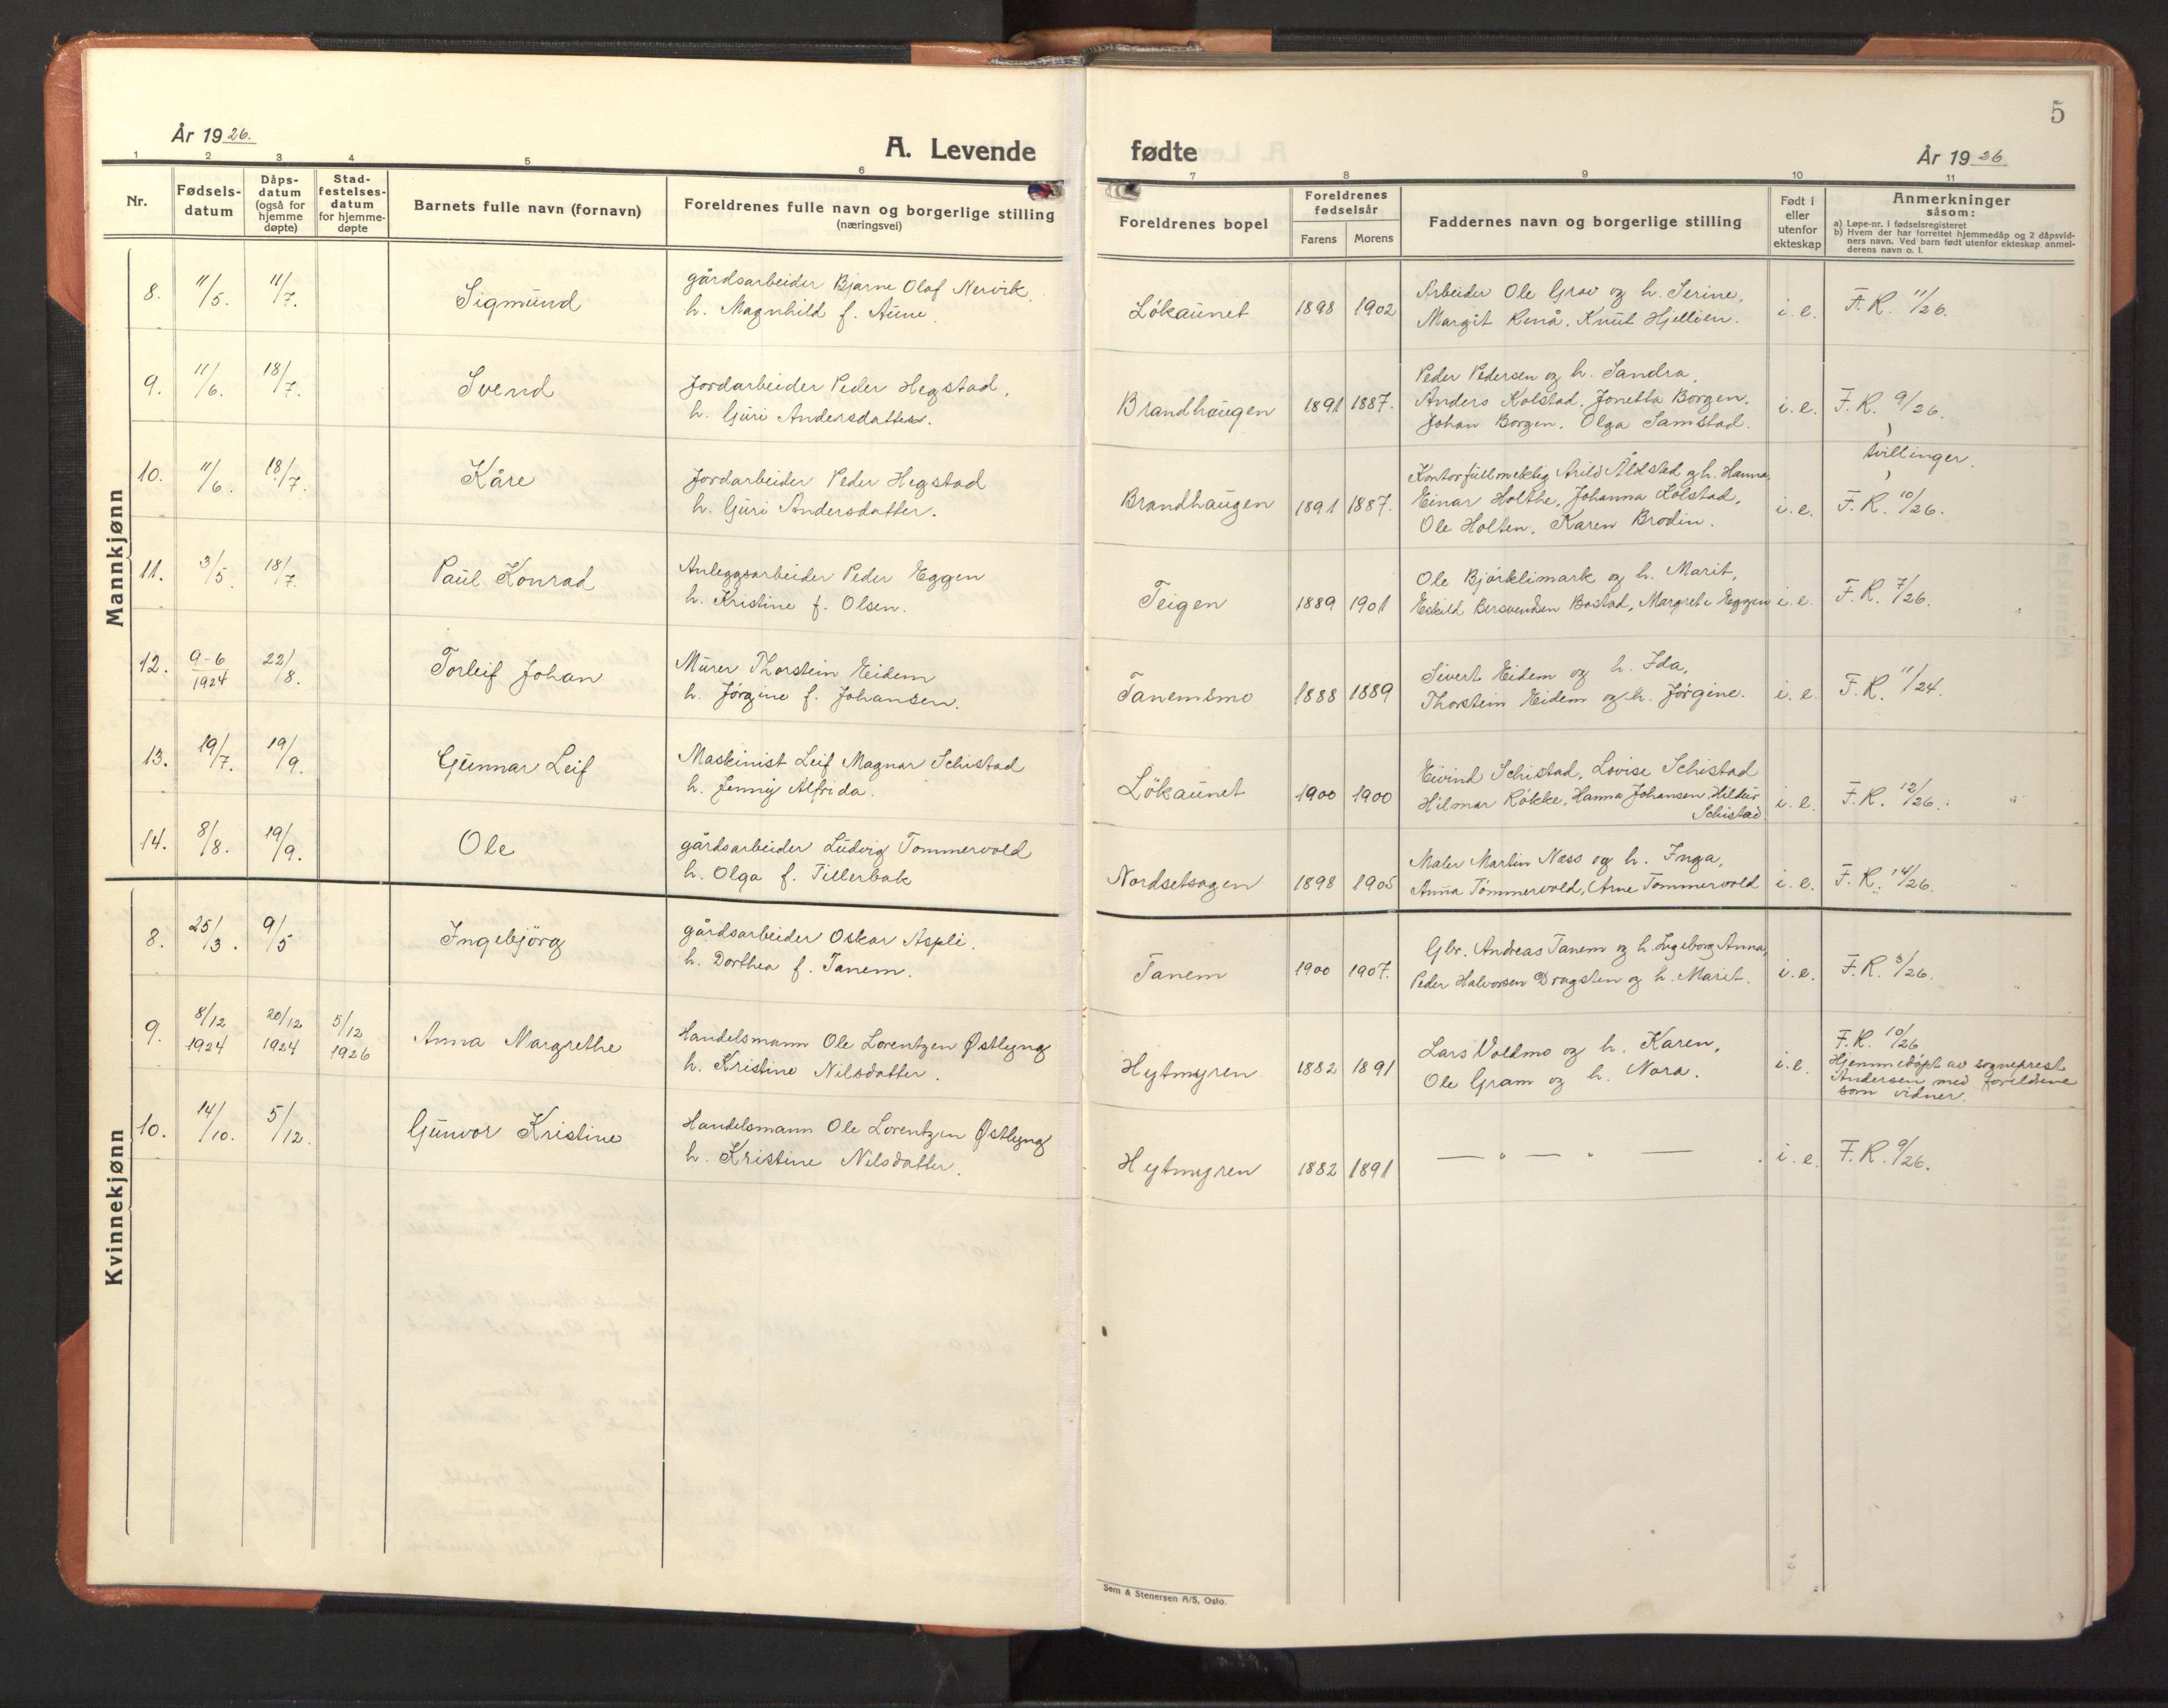 År 1926.
A. Levende
1 2 3 4 5 6
Nr.
Fødsels-
datum
Dåps-
datum
(også for
hjemme
døpte)
Stad-
festelses-
datum
for hjemme-
døpte
Barnets fulle navn (fornavn)
Foreldrenes fulle navn og borgerlige stilling
(næringsvei)
Mannkjønn
8. 11/5. 11/7. Sigmund gårdsarbeider Bjarne Olaf Nervik,
h. Magnhild f. Aune.
9. 11/6. 18/7. Svend Jordarbeider Peder Hegstad,
h. Guri Andersdatter.
10. 11/6. 18/7. Kåre Jordarbeider Peder Hegstad
h. Guri Andersdatter.
11. 3/5. 18/7. Paul Konrad Anleggsarbeider Peder Eggen
h. Kristine f. Olsen.
12. 9-6 22/8. Torleif Johan Murer Thorstein Eidem
1924 h. Jørgine f. Johansen.
13. 19/7. 19/9. Gunnar Leif Maskinist Leif Magnar Schistad
h. Jenny Alfrida.
14. 8/8. 19/9. Ole gårdsarbeider Ludvig Tømmervold
h. Olga f. Tillerbak
Kvinnekjønn
8. 25/3. 9/5 Ingebjörg gårdsarbeider Oskar Aspli.
h. Dorthea f. Tanem.
9. 8/12 20/12 5/12 Anna Margrethe Handelsmann Ole Lorentzen Østlyng
1924 1924 1926 h. Kristine Nilsdatter.
10. 14/10. 5/12. Gunvor Kristine Handelsmann Ole Lorentzen Østlyng
h. Kristine Nilsdatter.
5
fødte
År 1926
7 8 9 10 11
Foreldrenes bopel
Foreldrenes
fødselsår
Farens Morens
Faddernes navn og borgerlige stilling
Født i
eller
utenfor
ekteskap
Anmerkninger
såsom:
a) Løpe-nr. i fødselsregisteret
b) Hvem der har forrettet hjemmedåp og 2 dåpsvid-
ners navn. Ved barn født utenfor ekteskap anmel-
derens navn o. l.
Lökaunet 1898 1902 Arbeider Ole Grav og h. Serine, i. e. F. R. 11/26.
Margit Renå, Knut Hjellien.
Peder Pedersen og h. Sandra,
Brandhaugen 1891 1887. Anders Kolstad, Jonetta Borgen, i. e. F. R. 9/26.
Johan Borgen, Olga Samstad.
tvillinger.
Kontorfullmektig Arild Åldsted og h. Hanna,
Brandhaugen 1891 1887. Einar Holthe, Johanna Kolstad, i. e. F. R. 10/26.
Ole Holten, Karen Brodin.
Ole Bjørklimark og h. Marit,
Teigen 1889 1901 Eskild Bersvendsen Bostad, Margrete Eggen i. e. F. R. 7/26.
Sivert Eidem og h. Ida,
Tanemsmo 1888 1889 Thorstein Eidem og h. Jørgine. i. e. F. R. 11/24.
Eivind Schistad, Lovise Schistad
Lökaunet 1900 1900 Hilmar Røkke, Hanna Johansen, Hildur i. e. F. R. 12/26.
Schistad.
Maler Martin Næss og h. Inga,
Nordsetsagen 1898 1905 Anna Tömmervold, Arne Tømmervold i. e. F. R. 14/26.
Gbr. Andreas Tanem og h. Ingeborg Anna,
Tanem 1900 1907. Peder Halvorsen Dragsten og h. Marit. i. e. F. R. 3/26.
Lars Voldmo og h. Karen, F. R. 10/26
Hytmyren 1882 1891 Ole Gram og h. Nora. i. e. Hjemmedöpt av sogneprest
Andersen med foreldrene
som vidner.
Hytmyren 1882 1891 — " — " — i. e. F. R. 9/26.
Sem & Stenersen A/S, Oslo.